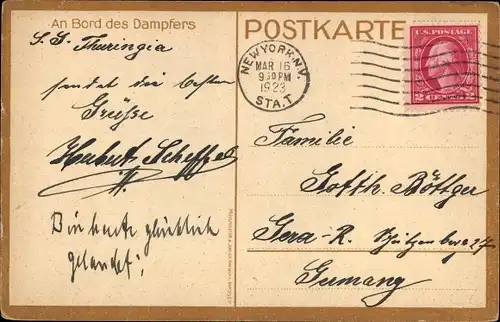 An Bord des Dampfers
S.S. Thuringia
sendet die besten
Grüsse
Herbert Scheffel
Bin heute glücklich
gelandet!
POSTKARTE
NEW YORK, N.Y.
MAR 16
9 30 PM
1923
STA. T
U.S. POSTAGE
2 CENTS 2
Familie
Gotth. Böttger
Gera-R. Schützenberg 27
Germany